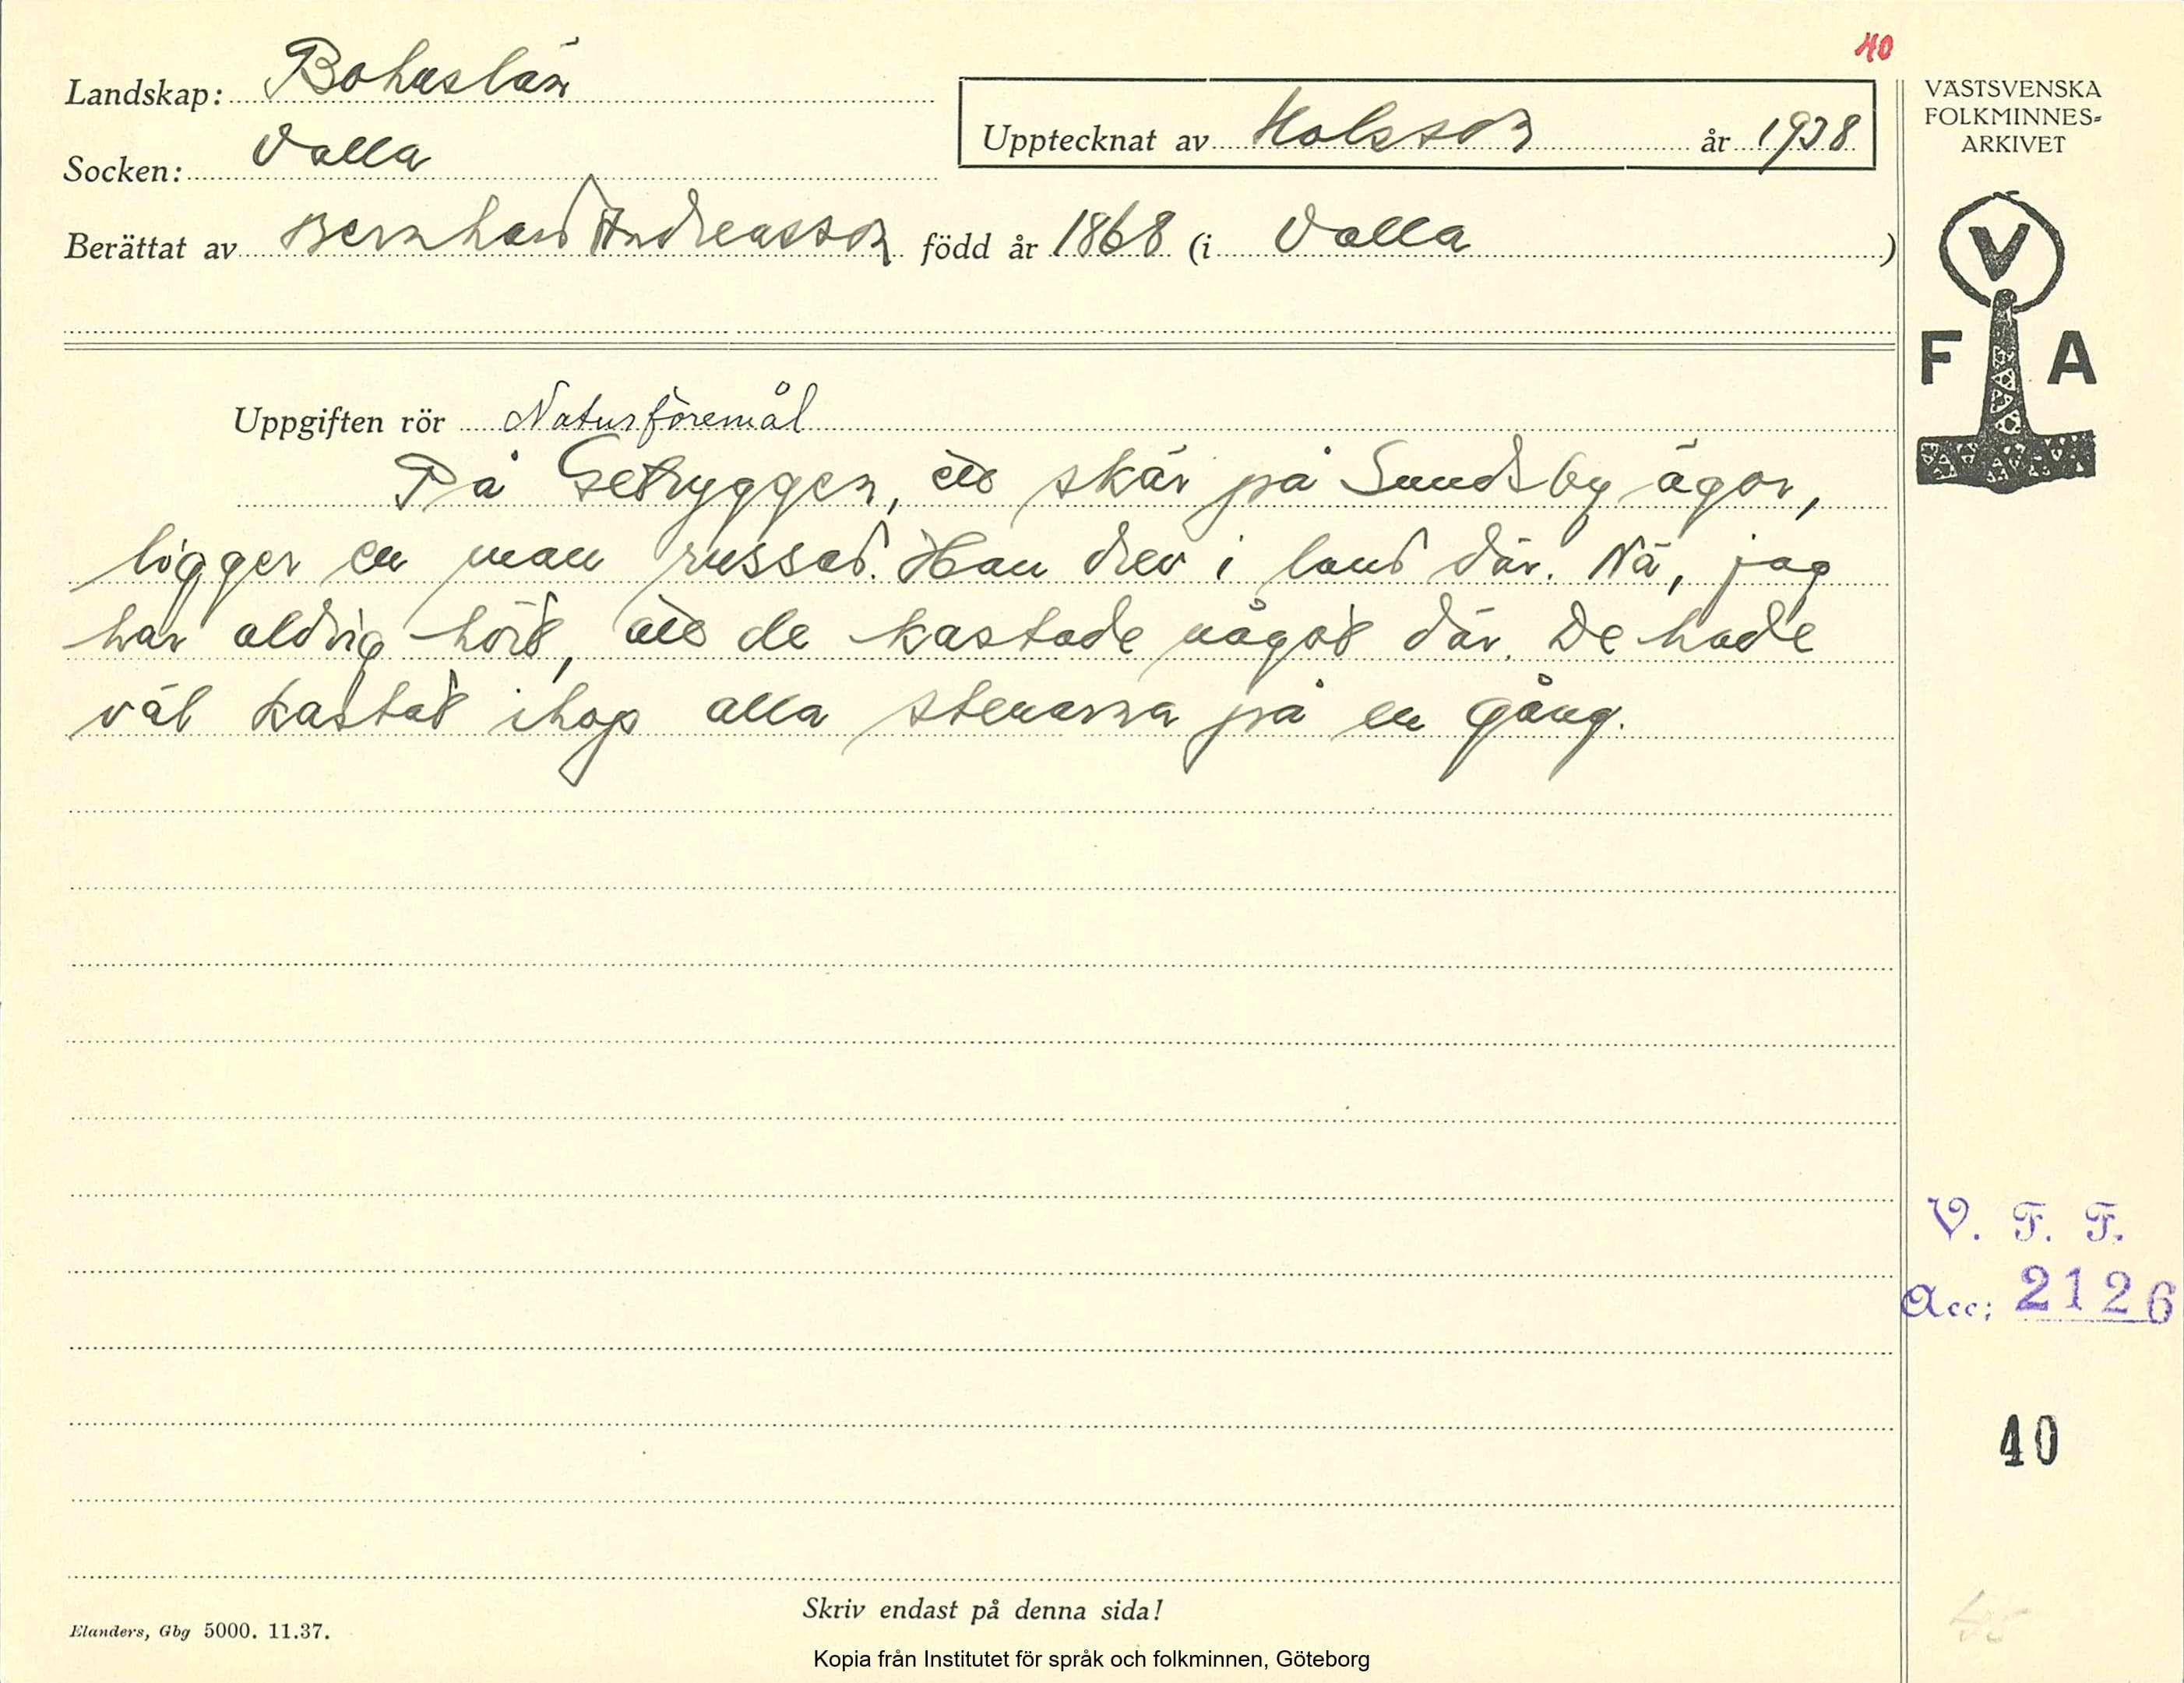 40
Landskap: Bohuslän
Upptecknat av Holsson år 1938
VÄSTSVENSKA
FOLKMINNES-
ARKIVET
Socken: Valla
Berättat av Bernhard Andreasson född år 1868 (i Valla )
V
F A
Uppgiften rör Naturföremål
På Getryggen, ett skär på Sundsby ägor,
ligger en man russad. Han drev i land där. Nä, jag
har aldrig hört, att de kastade något där. De hade
väl kastat ihop alla stenarna på en gång.
V. F. F.
Acc: 2126
40
Skriv endast på denna sida!
Elanders, Gbg 5000. 11.37.
Kopia från Institutet för språk och folkminnen, Göteborg